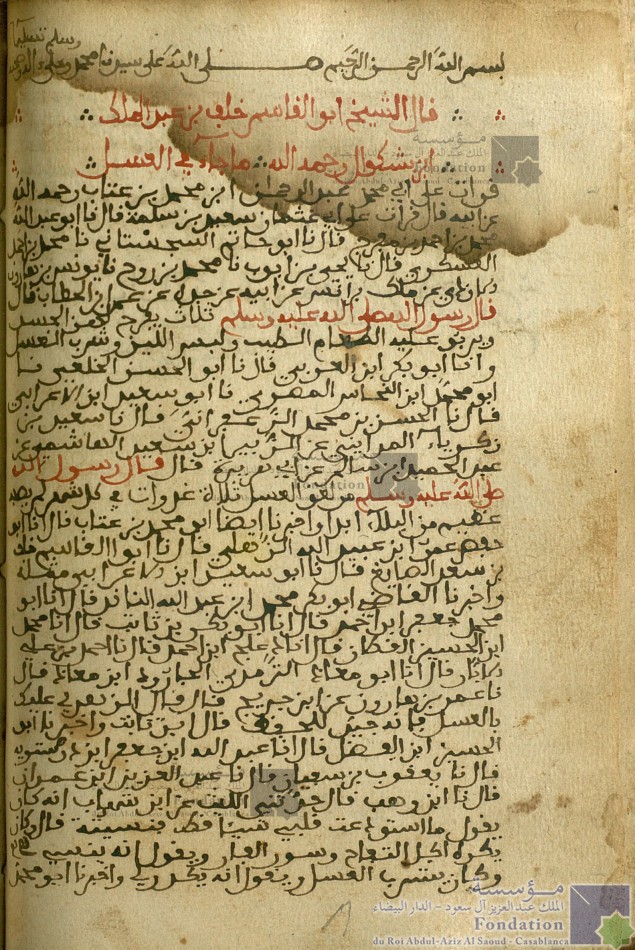 وسلم تسليما
بسم الله الرحمن الرحيم صلى الله على سيدنا محمد وعلى آله
قال الشيخ ابو القاسم خلف بن عبد الملك
ابن بشكوال رحمه الله ما جاء في العسل
قرات على ابي محمد عبد الرحمن ابن محمد بن عتاب رحمه الله
عن ابيه قال قرات على ابي عثمان سعيد بن سلمة قال نا ابو عبد الله
محمد بن احمد بن مفرج قال نا ابو حاتم السجستاني نا محمد بن
العسكري قال نا يحيى بن ايوب نا محمد بن روح نا يونس بن هارون
عن مالك بن انس عن ابيه عن جده عن عمر ابن الخطاب قال
قال رسول الله صلى الله عليه وسلم ثلاث يفرح لهن الجسد
ويربو عليه الطعام الطيب ولبس اللين وشرب العسل
وانا ابو بكر ابن العربي قال نا ابو الحسن الخلعي نا
ابو محمد ابن النحاس المصري نا ابو سعيد ابن الاعرابي
قال نا الحسن بن محمد الزعفراني قال نا سعيد بن
زكرياء المدايني عن الزبير ابن سعيد الهاشمي عن
عبد الحميد ابن سالم عن ابي هريرة قال قال رسول الله
صلى الله عليه وسلم من لعق العسل ثلاث غدوات في كل شهر لم يصبه
عظيم من البلاء ابدا واخبرنا ايضا ابو محمد بن عتاب قال نا ابو
حفص عمر ابن عبيد الله الزهلي قال نا ابو القاسم
بن سعد الصايغ قال نا ابو سعيد ابن الاعرابي مثله
واخبرنا القاضي ابو بكر محمد ابن عبد الله الناقد قال انا ابو
محمد جعفر ابن احمد قال انا ابو بكر بن ثابت قال انا محمد
ابن الحسين القطان قال انا دعلج ابن احمد قال نا احمد بن علي
الابار قال نا ابو معاذ الترمذي الجارود ابن معاذ قال
نا عمر بن هارون عن ابن جريج قال قال الزهري عليك
بالعسل فانه جيد للحفظ قال ابن ثابت واخبرنا ابو
الحسين ابن الفضل قال انا عبد الله ابن جعفر ابن درستويه
قال نا يعقوب بن سفيان قال نا عبد العزيز ابن عمران
قال نا ابن وهب قال حدثني الليث عن ابن شهاب انه كان
يقول ما استودعت قلبي شيئا قط فنسيته قال وكان
يكره اكل التفاح وسور الفار ويقول انه ينسي
وكان يشرب العسل ويقول انه يذكر واخبرنا ابو محمد
مؤسسة
الملك عبد العزيز آل سعود - الدار البيضاء
Fondation
du Roi Abdul-Aziz Al Saoud - Casablanca